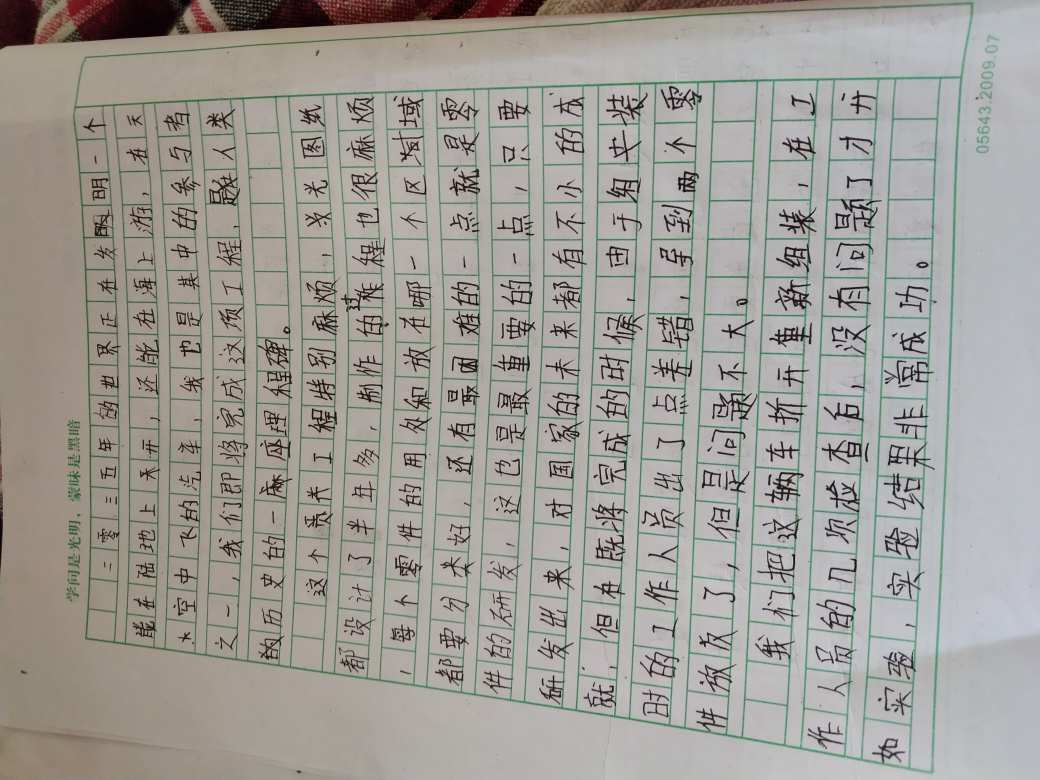 学问是光明，蒙昧是黑暗
二零三五年的世界正在发明一个
能在陆地上天开，还能在海上游，在天
空中飞的汽车，我也是其中的参与者
之一，我们即将完成这项工程，是人类
的历史的一座理程碑。
这个员养工程特别麻烦，光图纸
都设计了半年多，制作的过程也很麻烦
，每个零件的用处和放在哪一个区域
都要分类好，还有最困难的一点就是零
件的研发，这也是最重要的一点，只要
研发出来，对国家的未来都有不小的成
就，但在既将完成的时候，由于组装
时的工作人员出了点差错，导到两个零
件放反了，但是问题不大。
我们把这辆车折开重新组装，在工
作人员的几项检查后，没有问题了才开
如实验，实验结果非常成功。
05643.2009.07